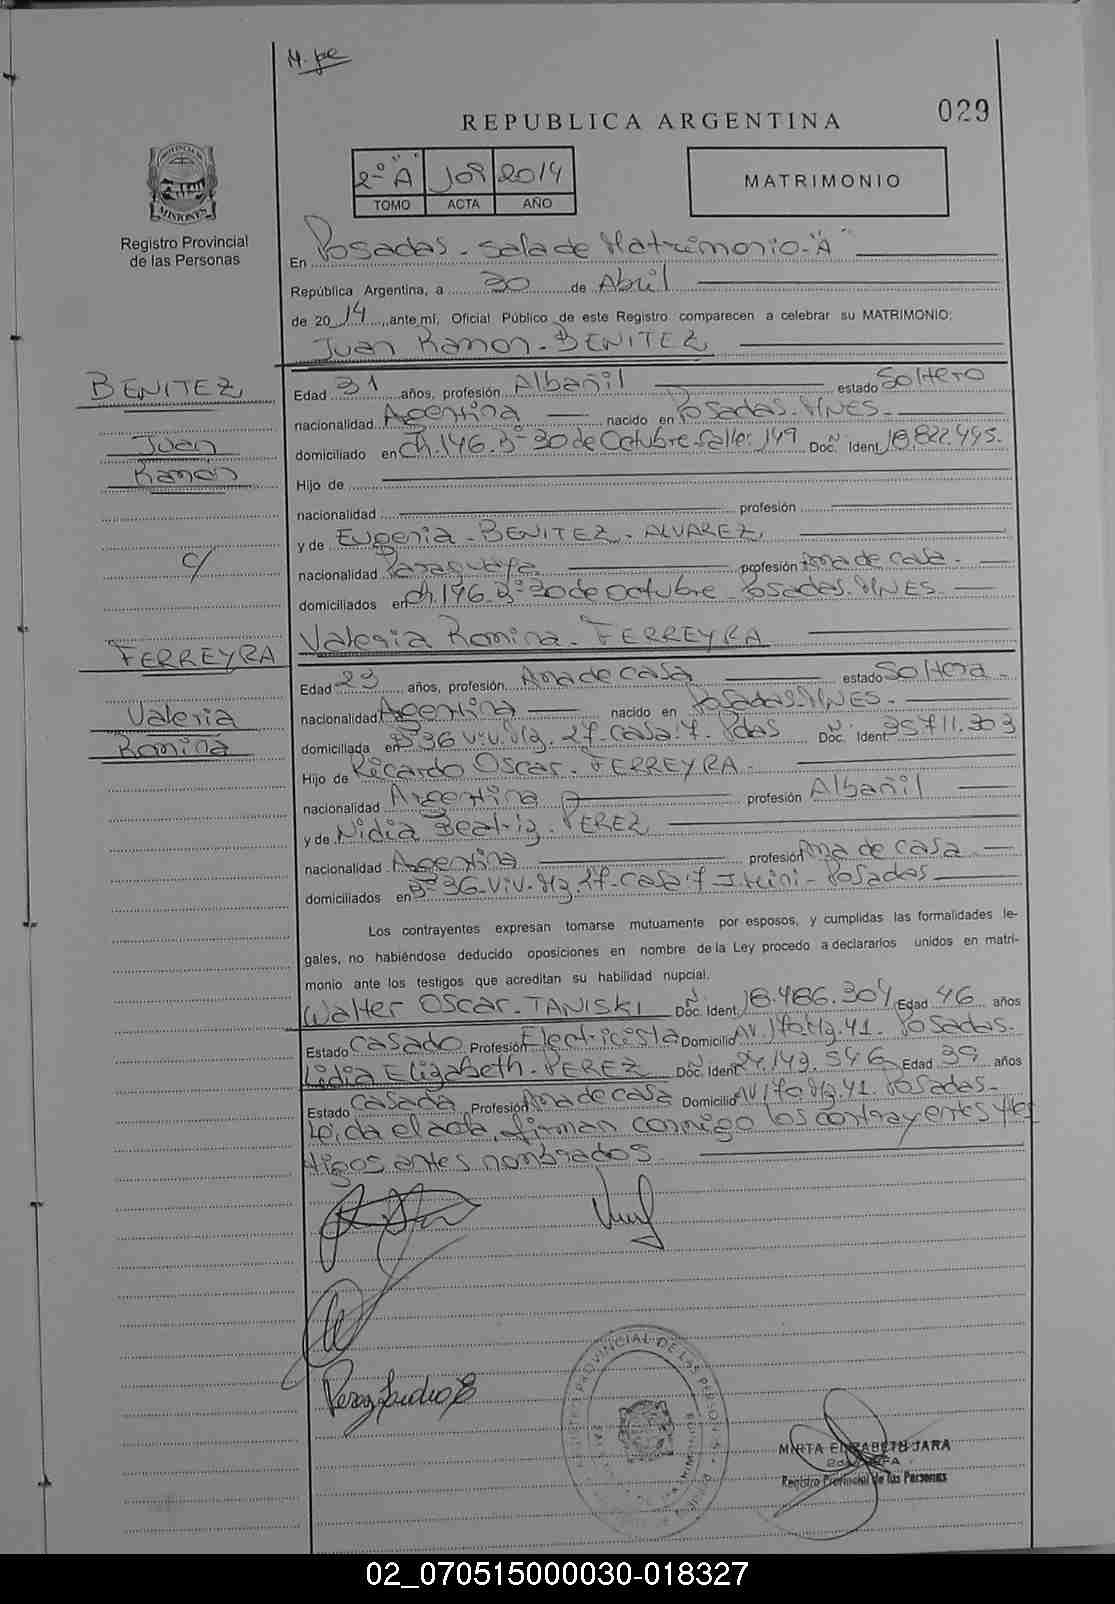 029
REPUBLICA ARGENTINA
2º "A" 2014
TOMO ACTA AÑO
MATRIMONIO
Registro Provincial
de las Personas
En Posadas - Sala de Matrimonio - "A"
República Argentina, a 30 de Abril
de 2014, ante mí, Oficial Público de este Registro comparecen a celebrar su MATRIMONIO:
Juan Ramon - BENITEZ
BENITEZ
Juan
Ramón
c/
FERREYRA
Valeria
Romina
Edad 31 años, profesión Albañil estado Soltero
nacionalidad Argentina nacido en Posadas - MNES.
domiciliado en Ch. 146. Bº 30 de Octubre. Calle: 149 Doc. Nº Ident. 18.822.495.
Hijo de
nacionalidad profesión
y de Eugenia - BENITEZ - ALVAREZ
nacionalidad Paraguaya profesión Ama de casa -
domiciliados en Ch. 146. Bº 30 de Octubre - Posadas. MNES.
Valeria Romina - FERREYRA
Edad 23 años, profesión Ama de casa estado Soltera -
nacionalidad Argentina nacido en Posadas. MNES.
domiciliada en Bº 36 Viv. Mz. 27. Casa: 7. Pdas Doc. Nº Ident. 35.711.303
Hijo de Ricardo Oscar - FERREYRA -
nacionalidad Argentina profesión Albañil
y de Nidia Beatriz - PEREZ
nacionalidad Argentina profesión Ama de casa
domiciliados en Bº 36 - Viv. Mz 27 - Casa 7 - Posadas
Los contrayentes expresan tomarse mutuamente por esposos, y cumplidas las formalidades le-
gales, no habiéndose deducido oposiciones en nombre de la Ley procedo a declararlos unidos en matri-
monio ante los testigos que acreditan su habilidad nupcial.
Walter Oscar - TANISKI Doc. Nº Ident. 18.486.304 Edad 46 años
Estado Casado Profesión Electricista Domicilio AV 170. Mz. 41. Posadas.
Lidia Elizabeth - PEREZ Doc. Nº Ident. 24.143.546 Edad 39 años
Estado Casada Profesión Ama de casa Domicilio AV 170 Mz. 41. Posadas -
Leída el acta, firman conmigo los contrayentes y tes
tigos antes nombrados.
MIRTA ELIZABETH JARA
Registro Provincial de las Personas
02_070515000030-018327